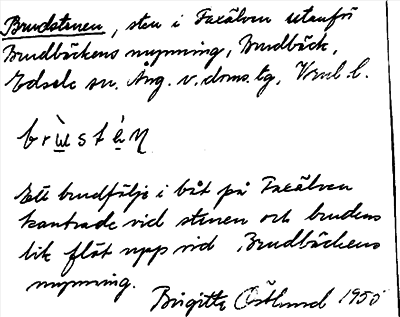 Brudstenen, sten i Faxälven utanför
Brudbäckens mynning, Brudbäck,
Edsele sn. Ång. v. doms. tg, Vnl l.
brɯ̀stèn
Ett brudfölje i båt på Faxälven
kantrade vid stenen och brudens
lik flöt upp vid Brudbäckens
mynning.
Birgitta Östlund 1950